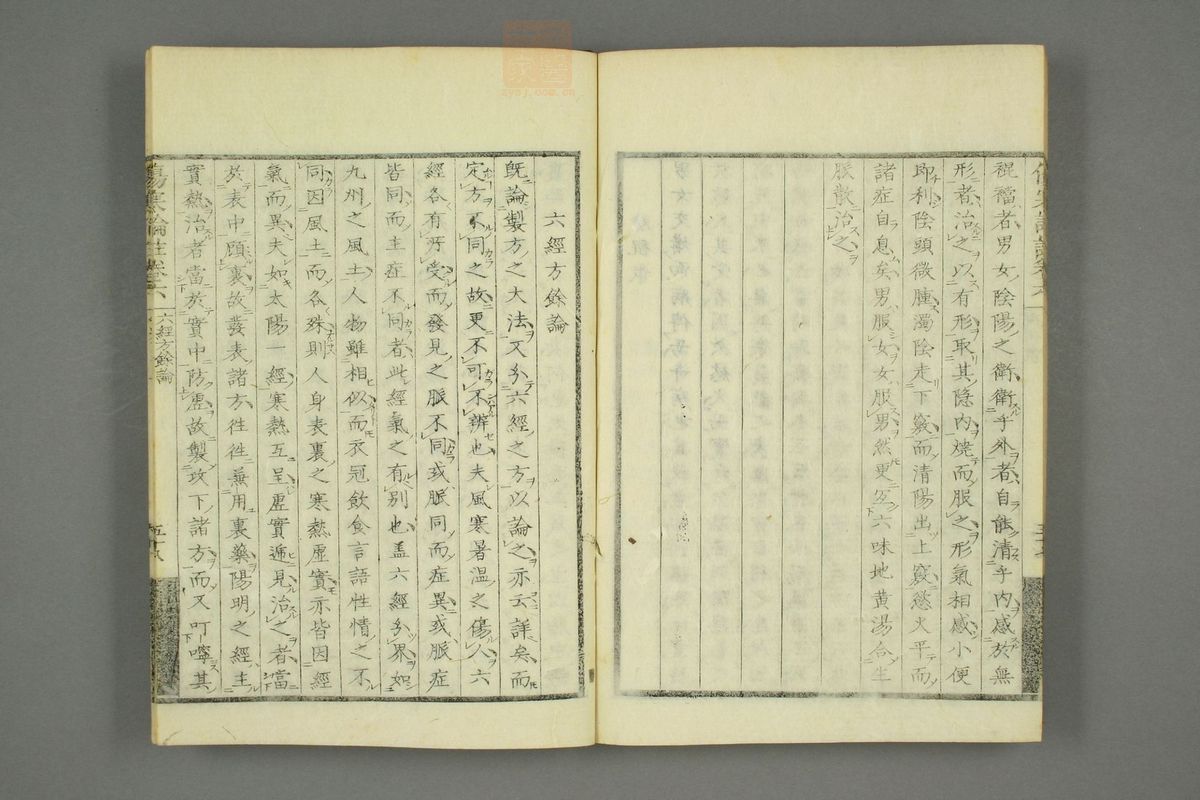 裩襠者男女陰陽之衛衛乎外者自能清乎内感於無
形者治之以有形取其隐内燒而服之形氣相感小便
即利陰頭微腫濁陰走下竅而清陽出上竅慾火平而
諸症自息矣男服女女服男然更宐六味地黄湯合生
脈散治之
六經方餘論
既論製方之大法又分六經之方以論之亦云詳矣而
定方不同之故更不可不辨也夫風寒暑温之傷人六
經各有所受而發見之脈不同或脈同而症異或脈症
皆同而主症不同者此經氣之有别也盖六經分界如
九州之風土人物雖相似而衣冠飲食言語性情之不
同因風土而各殊則人身表裏之寒熱虚實亦皆因經
氣而異夫如太陽一經寒熱互呈虚實遞見治之者當
於表中顧裏故發表諸方徃徃兼用裏藥陽明之經主
實熱治者當於實中防虚故製攻下諸方而又叮嚀其
傷寒論註卷六
六經方餘論